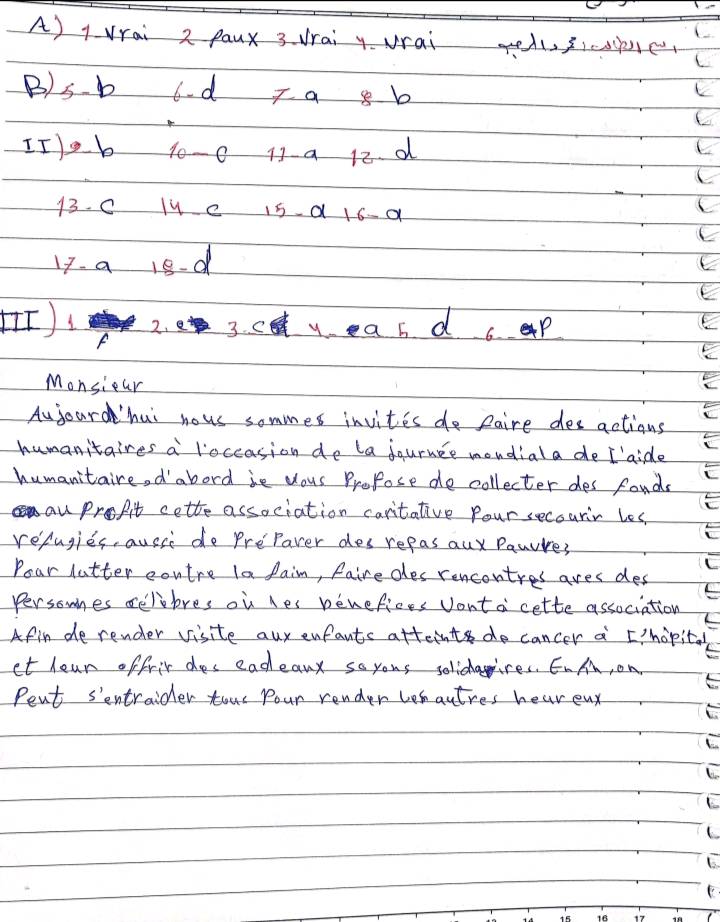 A) 1. Vrai 2 faux 3. Vrai 4. Vrai
B) 5-b 6-d 7-a 8-b
II) 9-b 10-c 11-a 12-d
13-c 14-c 15-d 16-a
17-a 18-d
III) 1 2. 3. c 4. a 5. d 6.
f
Monsieur
Aujourd'hui nous sommes invités de faire des actions
humanitaires à l'occasion de la journée mondiala de l'aide
humanitaire, d'abord je vous Propose de collecter des fonds
au Profit cette association caritative Pour secourir les
réfugiés. aussi de PréParer des repas aux Pauvres
Pour lutter contre la faim, faire des rencontres aves des
Personnes célèbres où les bénefices Vont à cette association
Afin de render visite aux enfants atteints de cancer à l'hôpital
et leur offrir des cadeaux soyons solidaires. Enfin, on
Peut s'entraider tous Pour render les autres heureux
13 14 15 16 17 18